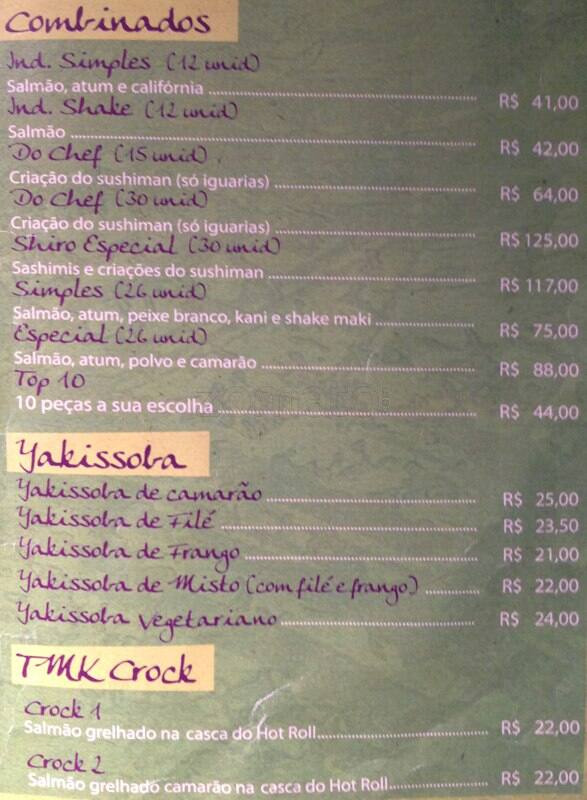 Combinados
Ind. Simples (12 unid)
Salmão, atum e califórnia ........ R$ 41,00
Ind. Shake (12 unid)
Salmão ........ R$ 42,00
Do Chef (15 unid)
Criação do sushiman (só iguarias) ........ R$ 64,00
Do Chef (30 unid)
Criação do sushiman (só iguarias) ........ R$ 125,00
Shiro Especial (30 unid)
Sashimis e criações do sushiman ........ R$ 117,00
Simples (26 unid)
Salmão, atum, peixe branco, kani e shake maki ........ R$ 75,00
Especial (26 unid)
Salmão, atum, polvo e camarão ........ R$ 88,00
Top 10
10 peças a sua escolha ........ R$ 44,00
Yakissoba
Yakissoba de camarão ........ R$ 25,00
Yakissoba de Filé ........ R$ 23,50
Yakissoba de Frango ........ R$ 21,00
Yakissoba de Misto (com filé e frango) ........ R$ 22,00
Yakissoba Vegetariano ........ R$ 24,00
TMK Crock
Crock 1
Salmão grelhado na casca do Hot Roll ........ R$ 22,00
Crock 2
Salmão grelhado camarão na casca do Hot Roll ........ R$ 22,00